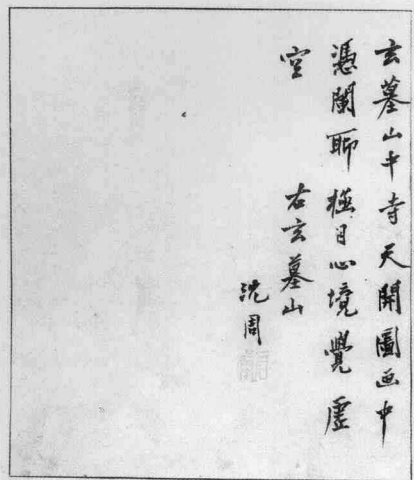 玄墓山中寺天開圖画中
憑闌聊極目心境覺虛
空
右玄墓山
沈周